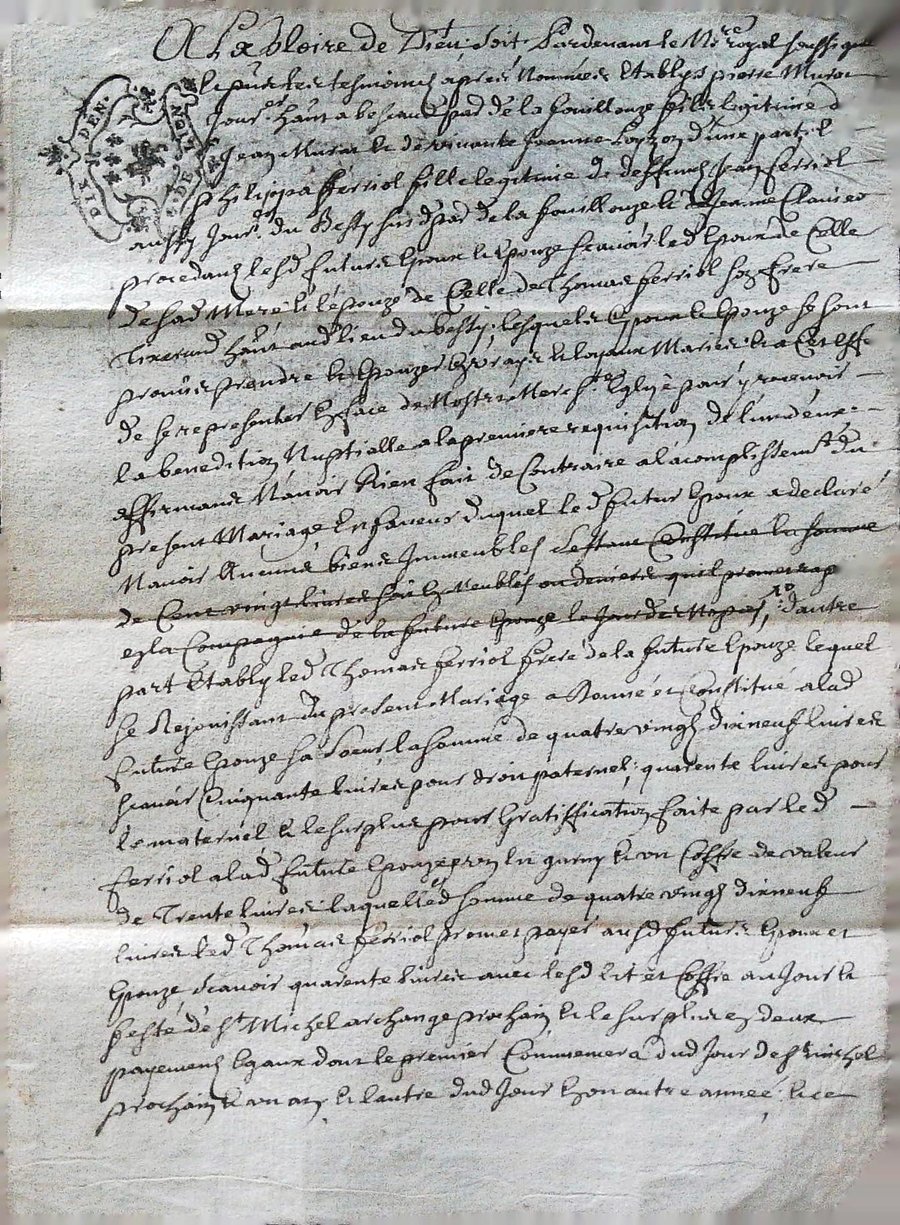 A La Gloire de Dieu soit Pardevant le No.re royal soussigné
les tesmoins apres Nommés Establys pierre Murat
Jour. habt a par de la fouillouze fils legitime d
Jean Murat et de vivante Jeanne d'une part et
philippa fferriol fille legitime de deffunct Jean fferriol
aussy Jour. du Besty susd par de la fouillouze et de Jeanne Clauier
procedants lesd futurs Epoux et Epouze scavoir led Epoux de Celle
de sad Mere et l'epouze de Celle de Thomas fferriol son frere
Tixerand habt aud lieu du besty, lesquels Epoux et Epouze se sont
promis prendre et Epouzer En vrays et loyaux Maries et a Cet effe
de se representer En face de Nostre Mere Ste Eglise pour y recevoir
la benediction Nuptialle a la premiere requisition de l'un d'eux
affirmans N'avoir Rien fait de Contraire a l'acomplissemt du
present Mariage En faveur duquel led futur Epoux a declaré
N'avoir Aucuns biens Immeubles sestant Constitué la somme
de Cent vingt livres soit En meubles ou deniers quil promet ap
a la Compagnie de la future Epouze le Jour des Nopces, d'autre
part Estably led Thomas fferriol frere de la future Epouze lequel
se Rejouissant du present Mariage a Donné et Constitué a lad
future Epouze sa soeur la somme de quatre vingts dixneuf livres
scavoir Cinquante livres pour droit paternel, quarente livres pour
le maternel et le surplus pour Gratiffication faite par led
fferriol a lad future Epouze lit garny et un Coffre de valeur
de Trente livres laquelle somme de quatre vingts dixneuf
livres led Thomas fferriol promet payer ausd futurs Epoux et
Epouze scavoir quarente livres avec lesd Lit et Coffre au Jour et
feste de St Michel archange prochain et le surplus en deux
payements Egaux dont le premier Commencera dud Jour de St Michel
prochain en un an et l'autre dud Jour En on autre année, et ce
DIX DEN.
LION DE